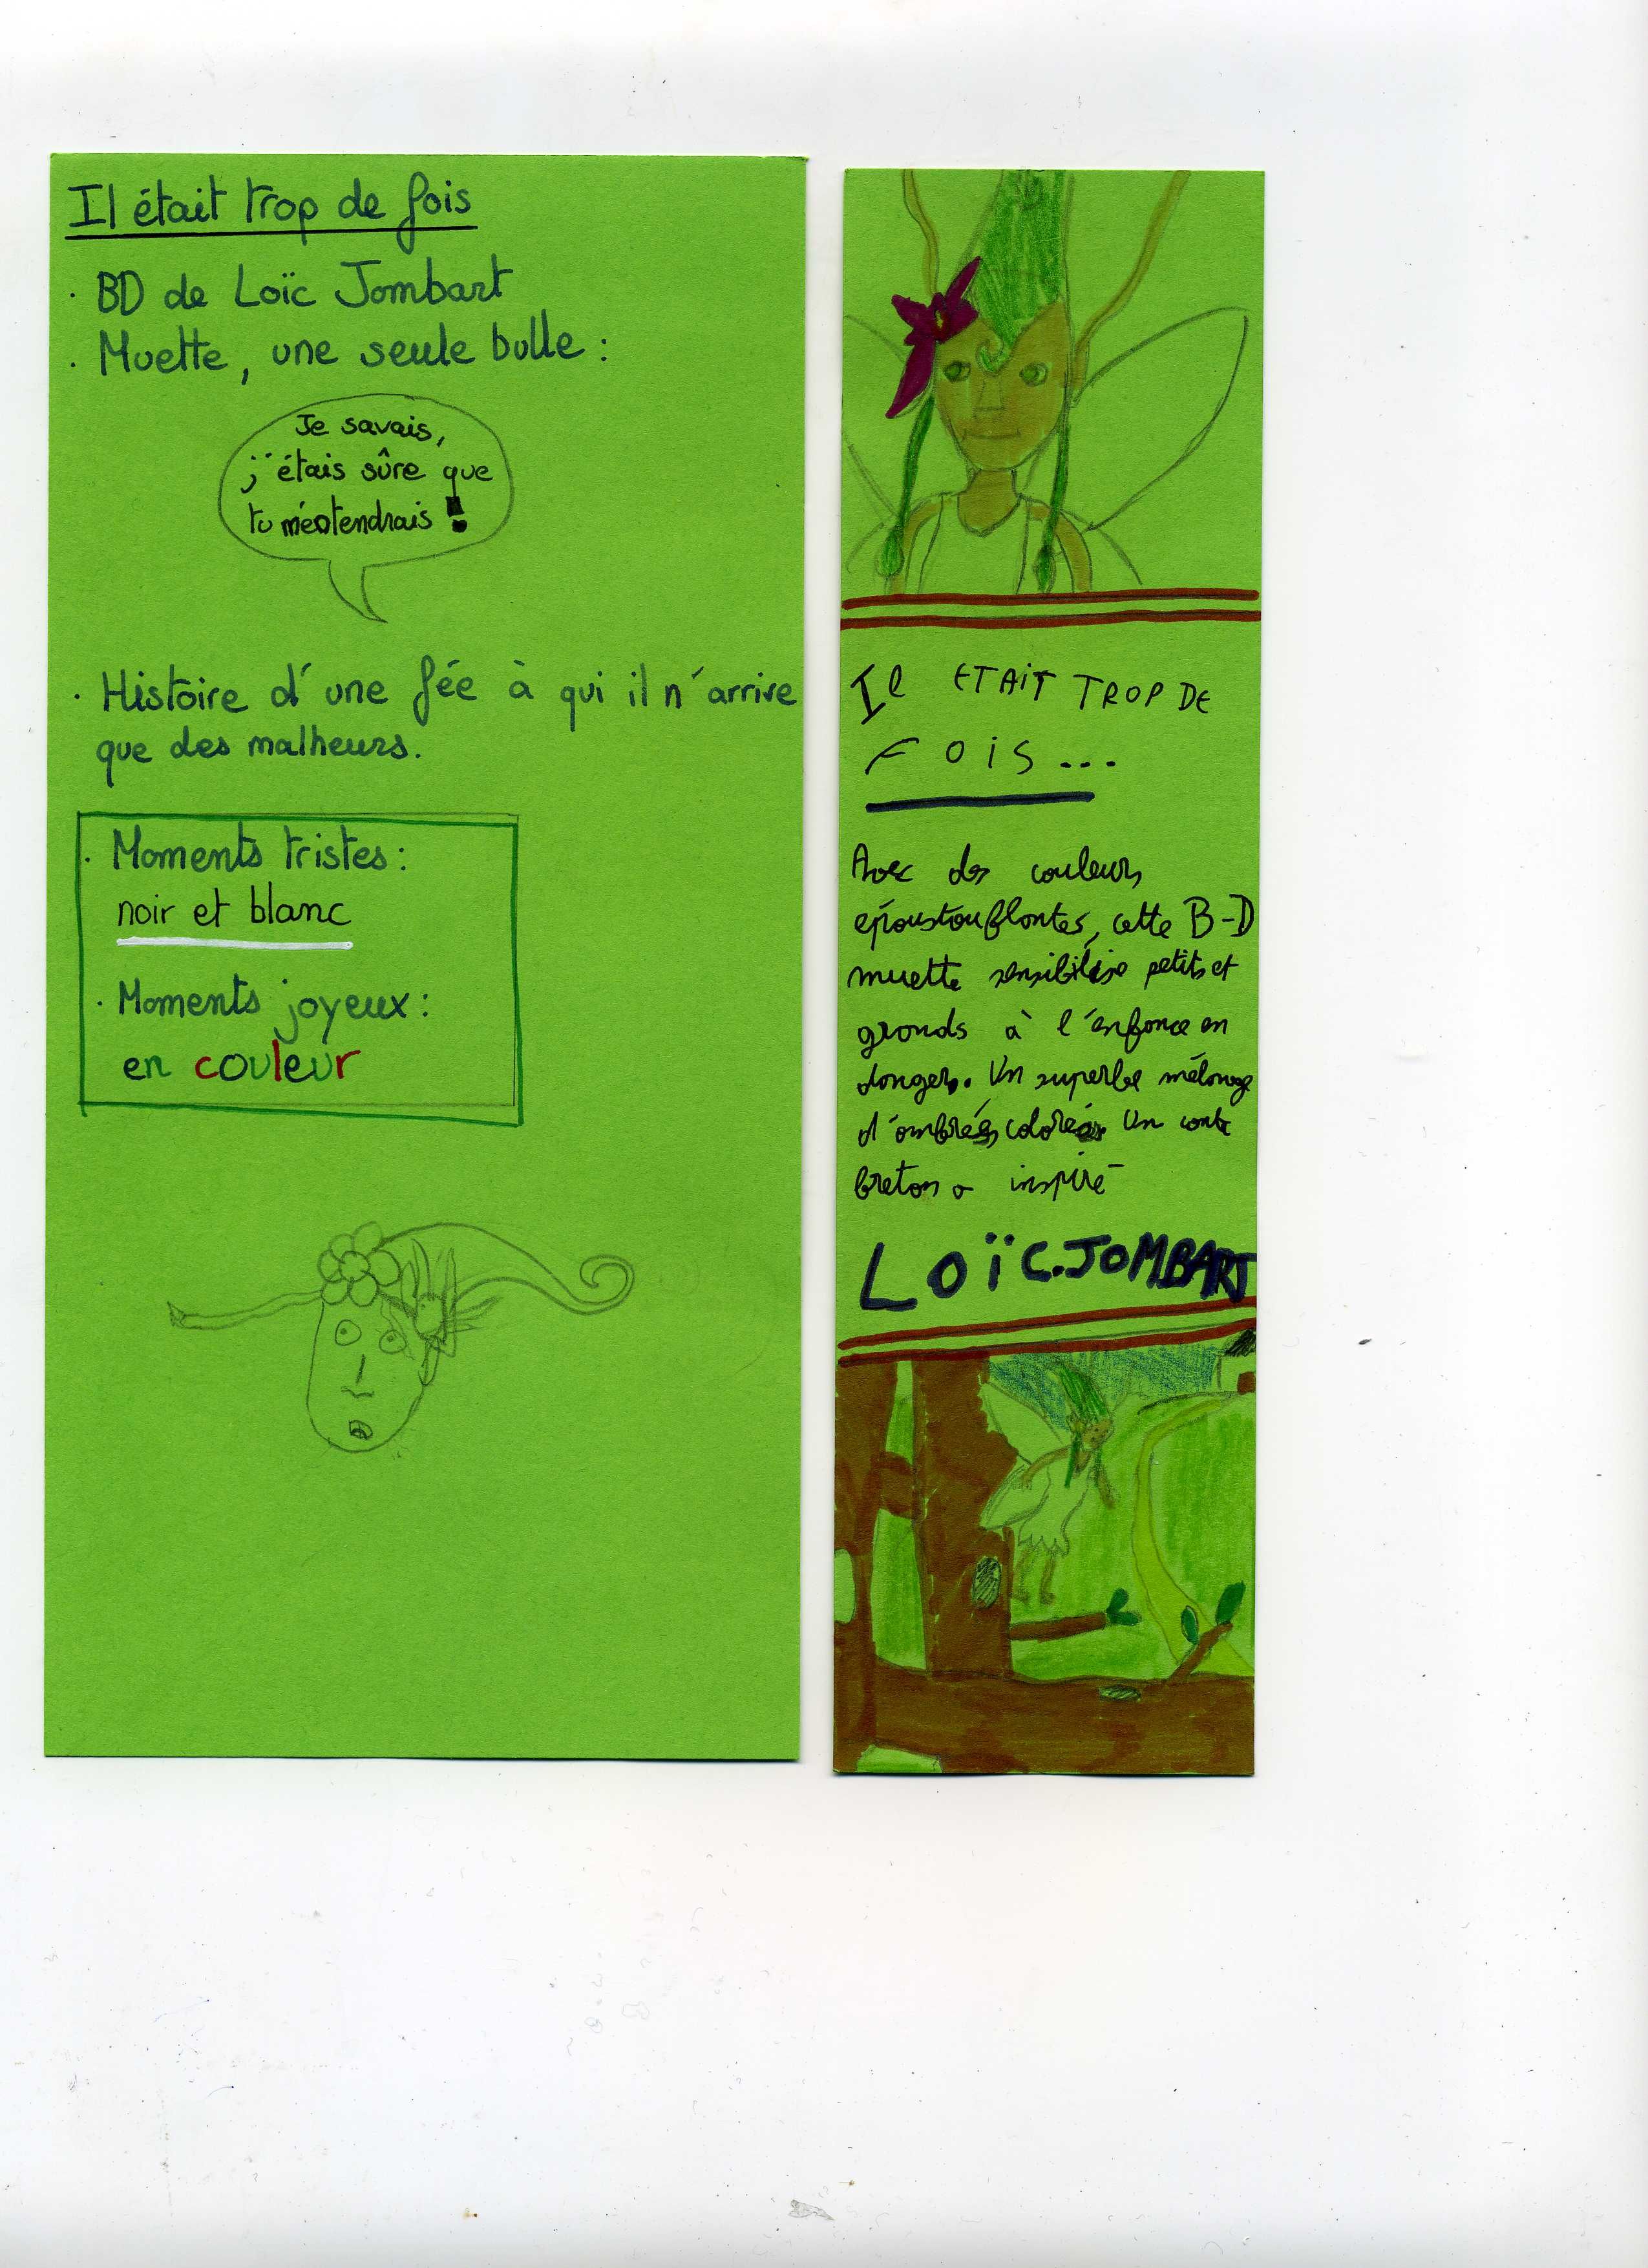 Il était trop de fois
· BD de Loïc Jombart
· Muette, une seule bulle :
Je savais,
j'étais sûre que
tu m'entendrais !
· Histoire d'une fée à qui il n'arrive
que des malheurs.
· Moments tristes :
noir et blanc
· Moments joyeux :
en couleur
Il ETAiT TROP DE
FOiS...
Avec des couleurs
époustouflantes, cette B-D
muette sensibilise petits et
grands à l'enfance en
danger. Un superbe mélange
d'ombrés colorés. Un conte
breton a inspiré
LOïC.JOMBART